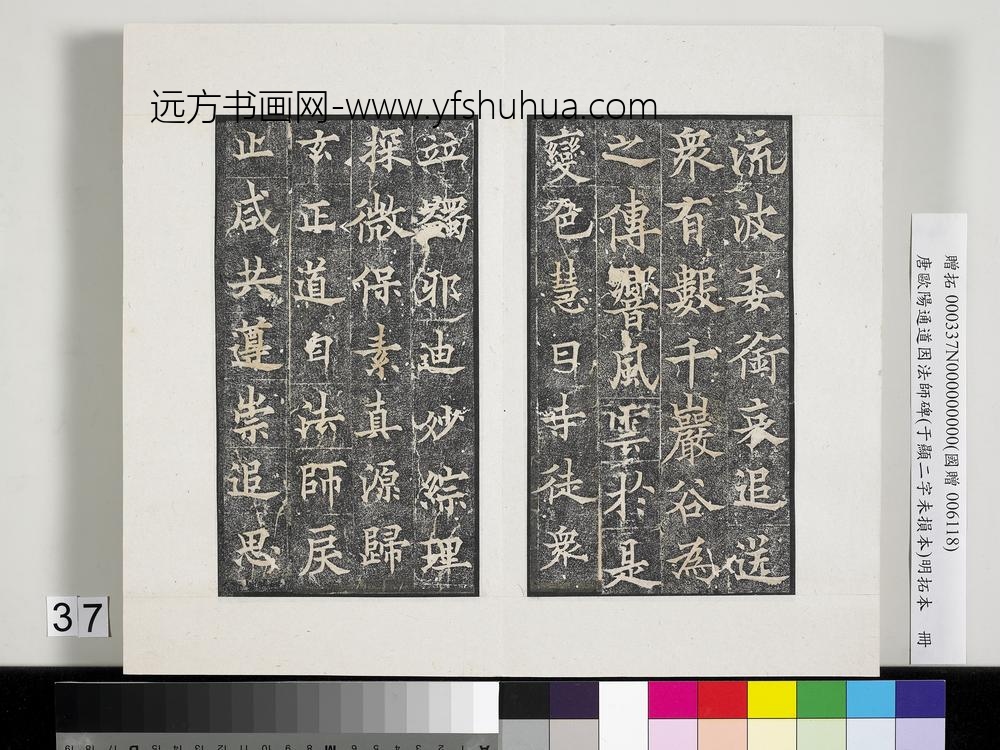 远方书画网-www.yfshuhua.com
流波委銜哀追送
衆有數千巖谷為
之傳響風雲於是
變色慧日寺徒衆
竝躅邪迪妙綜理
探微保素真源歸
玄正道自法師戾
止咸共遵崇追思
贈拓 000337N000000000(國贈 006118)
唐歐陽通道因法師碑(于顯二字未損本)明拓本 冊
37